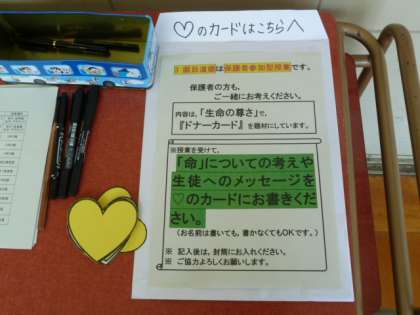 ♡のカードはこちらへ
１限目道徳は保護者参加型授業です。
保護者の方も、
ご一緒にお考えください。
内容は、「生命の尊さ」で、
『ドナーカード』を題材にしています。
※授業を受けて、
「命」についての考えや
生徒へのメッセージを
♡のカードにお書きくだ
さい。
（お名前は書いても、書かなくてもOKです。）
※ 記入後は、封筒にお入れください。
※ ご協力よろしくお願いします。